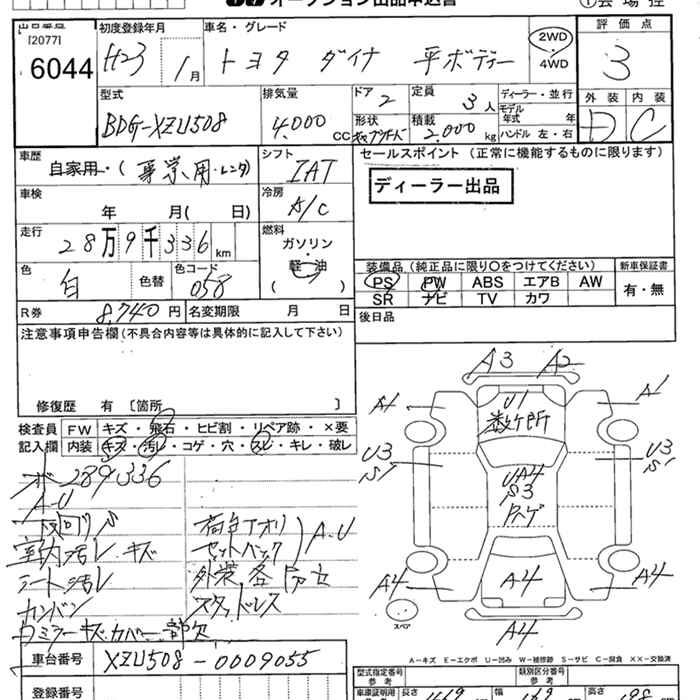 オークション出品申込書
①会場控
出品番号 [2077] 6044
初度登録年月 H23 1月
車名・グレード トヨタ ダイナ 平ボディー
2WD・4WD
評価点 3
外装 D 内装 C
型式 BDG-XZU508
排気量 4,000 CC
ドア 2 形状
定員 3人 積載 2,000 kg
ディーラー・並行
モデル年式 年
ハンドル 左・右
車歴 自家用・(事業用・レンタ
シフト IAT
車検 年 月( 日)
冷房 A/C
走行 28万9千336km
燃料 ガソリン・軽油 ( )
色 白 色替 色コード 058
R券 8,740円 名変期限 月 日
セールスポイント (正常に機能するものに限ります)
ディーラー出品
装備品(純正品に限り○をつけてください) 新車保証書
PS PW ABS エアB AW 有・無
SR ナビ TV カワ
後日品
注意事項申告欄(不具合内容等は具体的に記入して下さい)
修復歴 有 〔箇所 〕
検査員 FW キズ・飛石・ヒビ割・リペア跡・×要
記入欄 内装 キズ・汚レ・コゲ・穴・スレ・キレ・破レ
289,336
A-U
室内汚レ キズ
シート汚レ
カンバン
ミラーキズ カバー 欠
荷台アオリ
セットバック
A・U
外装各
スタッドレス
A3 A2
A1 A1
U1
数ヶ所
U3 U3
S1 S1
UA4
S3
A4 A4 A4
A4
スペア
A−キズ E−エクボ U−凹み W−補修跡 S−サビ C−腐食 XX−交換済
車台番号 XZU508-0009055
登録番号
型式指定番号 参考
類別区分番号 参考
車庫証明用 参考 長さ 469 幅 189 高さ 198